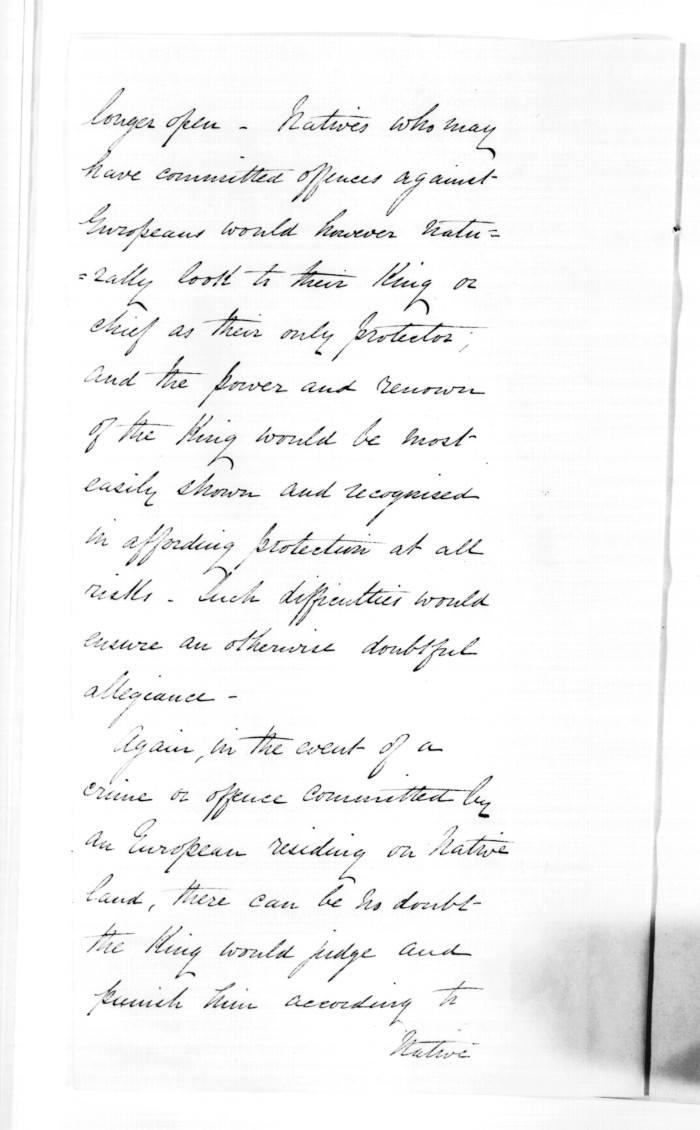 longer open - Natives who may
have committed offences against
Europeans would however natu=
=rally look to their King or
chief as their only protector;
and the power and renown
of the King would be most
easily shown and recognised
in affording protection at all
risks - Such difficulties would
ensure an otherwise doubtful
allegiance -
Again, in the event of a
crime or offence committed by
an European residing on Native
land, there can be no doubt
the King would judge and
punish him according to
Native